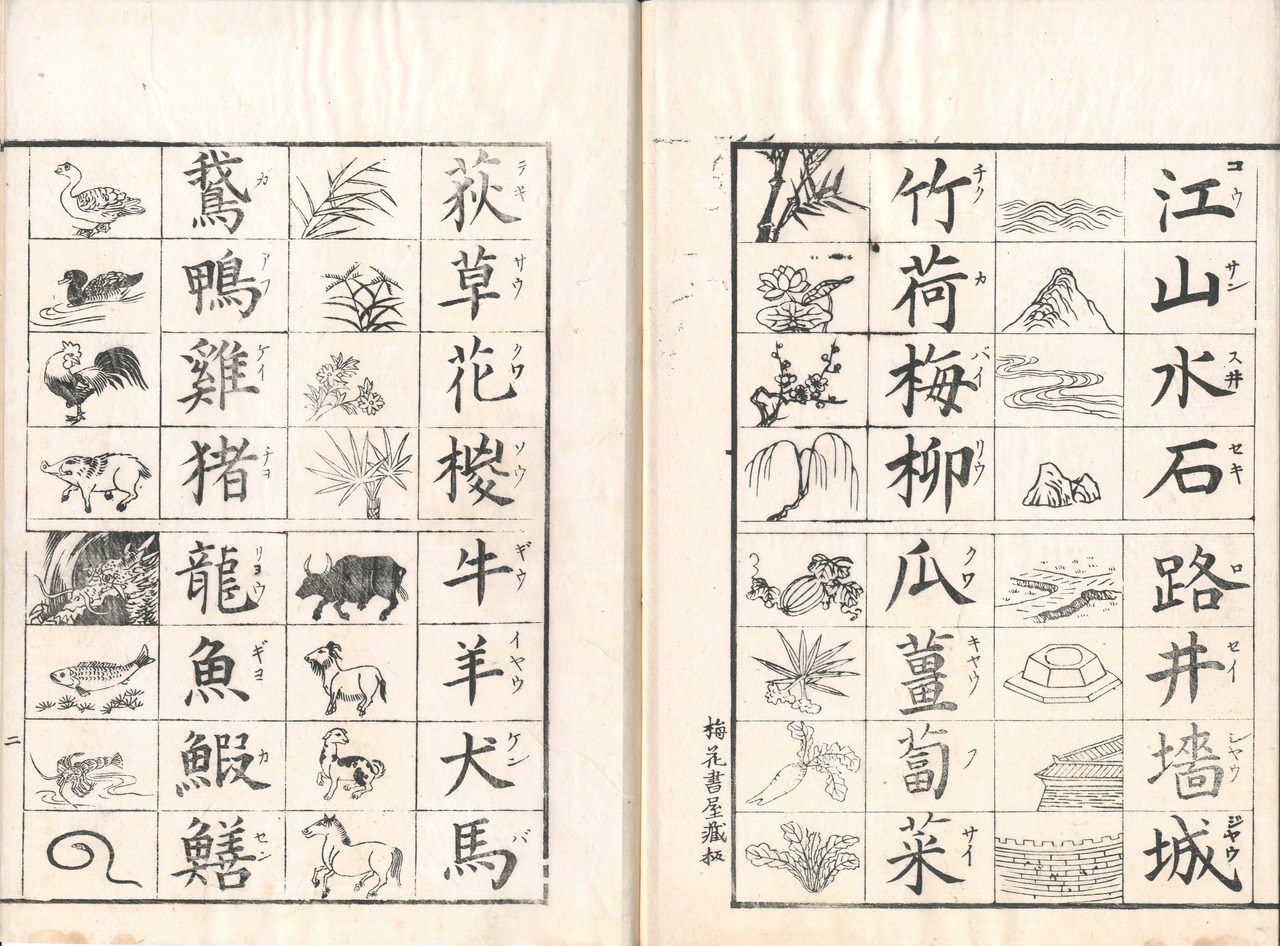 江 コウ
山 サン
水 スヰ
石 セキ
路 ロ
井 セイ
墻 シヤウ
城 ジヤウ
竹 チク
荷 カ
梅 バイ
柳 リウ
瓜 クワ
薑 キヤウ
蔔 フ
菜 サイ
梅花書屋藏板
荻 テキ
草 サウ
花 クワ
椶 ソウ
牛 ギウ
羊 イヤウ
犬 ケン
馬 バ
鵞 ガ
鴨 アフ
雞 ケイ
猪 チヨ
龍 リヨウ
魚 ギヨ
鰕 カ
鱔 セン
二